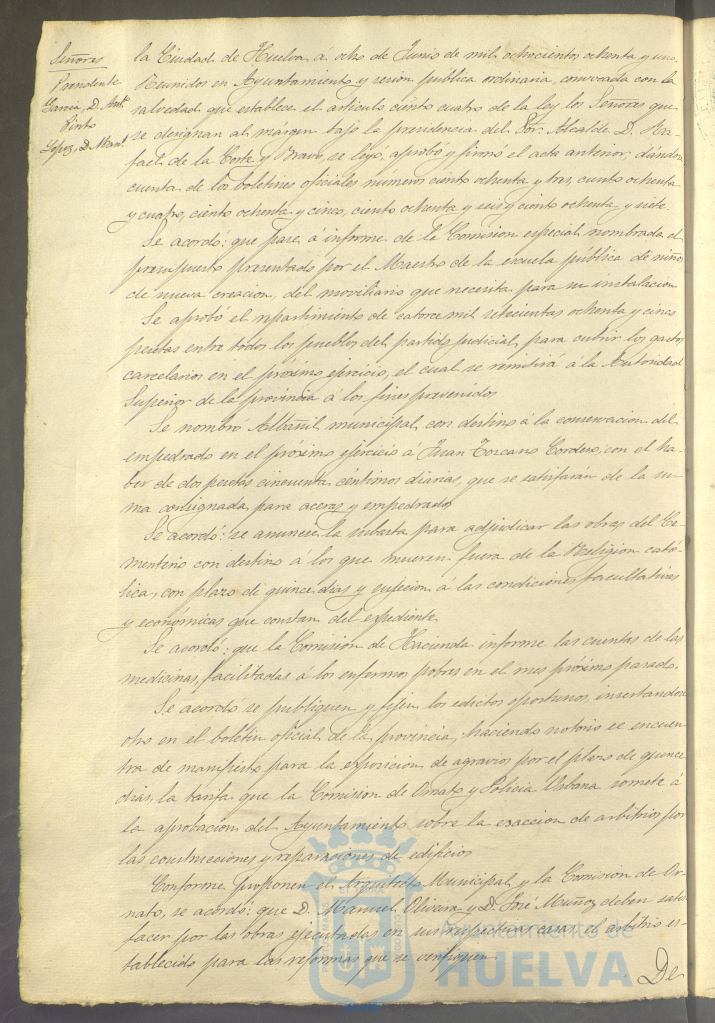 Señores
Presidente
Garcia, D. Antº
Pinto
Lopez, D. Manl.
la Ciudad de Huelva á ocho de Junio de mil ochocientos ochenta y uno,
Reunidos en Ayuntamiento y sesion publica ordinaria, convocada con la
salvedad que establece el articulo ciento cuatro de la ley los Señores que
se designan al margen bajo la presidencia del Sor. Alcalde D. Ra-
fael de la Corte y Bravo, se leyó, aprobó y firmó el acta anterior; dándose
cuenta de los boletines oficiales numeros ciento ochenta y tres, ciento ochenta
y cuatro, ciento ochenta y cinco, ciento ochenta y seis y ciento ochenta y siete.
Se acordó: que pase á informe de la Comision especial nombrada el
presupuesto presentado por el Maestro de la escuela pública de niños
de nueva creacion, del moviliario que necesita para su instalacion
Se aprobó el repartimiento de catorce mil setecientas ochenta y cinco
pesetas entre todos los pueblos del partido judicial, para cubrir los gastos
carcelarios en el próximo ejercicio, el cual se remitirá á la Autoridad
Superior de la provincia á los fines prevenidos
Se nombró Albañil municipal con destino á la conservacion del
empedrado en el próximo ejercicio á Juan Toscano Cordero, con el ha-
ber de dos pesetas cincuenta céntimos diarias, que se satisfarán de la su-
ma consignada para aceras y empedrados
Se acordó: se anuncie la subasta para adjudicar las obras del Ce-
menterio con destino á los que mueren fuera de la Religion cató-
lica, con plazo de quince dias y sujecion á las condiciones facultativas
y económicas que constan del expediente
Se acordó: que la Comision de Hacienda informe las cuentas de las
medicinas, facilitadas á los enfermos pobres en el mes próximo pasado.
Se acordó se publiquen y fijen los edictos oportunos, insertandose
otro en el boletin oficial de la provincia, haciendo notorio se encuen-
tra de manifiesto para la exposicion de agravios por el plazo de quince
dias, la tarifa que la Comision de Ornato y Policia Urbana somete á
la aprobacion del Ayuntamiento sobre la exaccion de arbitrios por
las construcciones y reparaciones de edificios
Conforme proponen el Arquitecto Municipal y la Comision de Or-
nato, se acordó: que D. Manuel Olivera y D. José Muñoz deben satis-
facer por las obras ejecutadas en sus respectivas casas, el arbitrio es-
tablecido para las reformas que se verifiquen.
De
Ayuntamiento de
HUELVA